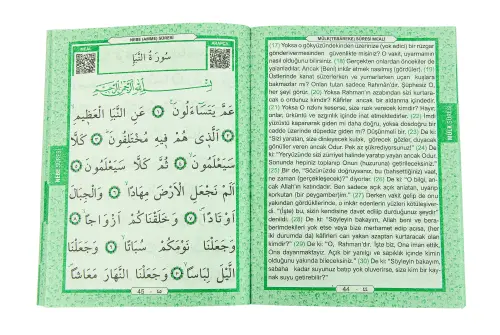 NEBE (AMME) SÛRESİ
MEAL
ARAPÇA
سُورَةُ النَّبَأِ
بِسْمِ اللّٰهِ الرَّحْمٰنِ الرَّحِيمِ
عَمَّ يَتَسَآءَلُونَ ١ عَنِ النَّبَأِ الْعَظِيمِ
٢ اَلَّذِى هُمْ فِيهِ مُخْتَلِفُونَ ٣ كَلَّا
سَيَعْلَمُونَ ٤ ثُمَّ كَلَّا سَيَعْلَمُونَ ٥
اَلَمْ نَجْعَلِ الْاَرْضَ مِهَادًا ٦ وَالْجِبَالَ
اَوْتَادًا ٧ وَخَلَقْنَاكُمْ اَزْوَاجًا ٨
وَجَعَلْنَا نَوْمَكُمْ سُبَاتًا ٩ وَجَعَلْنَا
الَّيْلَ لِبَاسًا ١٠ وَجَعَلْنَا النَّهَارَ مَعَاشًا
NEBE SÛRESİ
45 - ٤٥
MÜLK(TEBAREKE) SÛRESİ MEALİ
(17) Yoksa o gökyüzündekinin üzerinize (yok edici) bir rüzgar
göndermeyeceğinden güvenlikte misiniz? O vakit, uyarmamın
nasıl olduğunu bileceksiniz. (18) Gerçekten onlardan öncekiler de
yalanladılar. Ancak (Ben) inkâr etmek nasılmış (gördüler). (19)
Üstlerinde kanat süzerlerken ve yumarlarken uçan kuşlara
bakmazlar mı? Onları tutan sadece Rahman'dır. Şüphesiz O,
her şeyi görür. (20) Yoksa Rahman'ın azabından sizi kurtara-
cak o ordunuz kimdir? Kâfirler ancak bir aldanma içindedir.
(21) Yoksa O rızkını keserse, size rızık verecek kimdir? Hayır;
onlar, ürküntü ve azgınlık içinde inat etmektedirler. (22) Hem
yüzüstü kapanarak giden mi daha doğru, yoksa dosdoğru bir
cadde üzerinde düpedüz giden mi? Düşünmeli bir, (23) De ki:
"Sizi yaratan, size dinleyecek kulak, görecek gözler, duyacak
gönüller veren ancak O'dur. Pek az şükrediyorsunuz!" (24) De
ki: "Yeryüzünde sizi zürriyet halinde yaratıp yayan ancak Odur.
Sonunda hepiniz toplanıp Onun (huzuruna) getirileceksiniz."
(25) Bir de, "Sözünüzde doğruysanız, bu (bahsettiğiniz) vaat,
ne zaman (gerçekleşecek)?" diyorlar. (26) De ki: "O bilgi, an-
cak Allah'ın katındadır. Ben sadece açık açık anlatan, uyarıp-
korkutan (bir peygamberim)." (27) Derken vakit gelip de onu
yakından gördüklerinde, o inkâr edenlerin yüzleri kötüleşiver-
di. "(İşte) bu, sizin kendisine davet edilip durduğunuz şeydir"
denildi. (28) De ki: "Söyleyin bakayım, Allah beni ve bera-
berimdekileri yok etse veya bize merhamet edip acısa, (her
iki durumda da) kâfirleri can yakan azaptan kurtaracak olan
kimdir?" (29) De ki: "O, Rahman'dır. İşte biz, Ona iman ettik,
Ona dayanmaktayız. Açık bir yanılgı ve sapıklık içinde kimin
olduğunu yakında bileceksiniz." (30) De ki: "Söyleyin bakayım,
sabaha kadar suyunuz batıp yok oluverirse, size kim bir kay-
nak suyu getirebilir?"
MÜLK SÛRESİ
44 - ٤٤